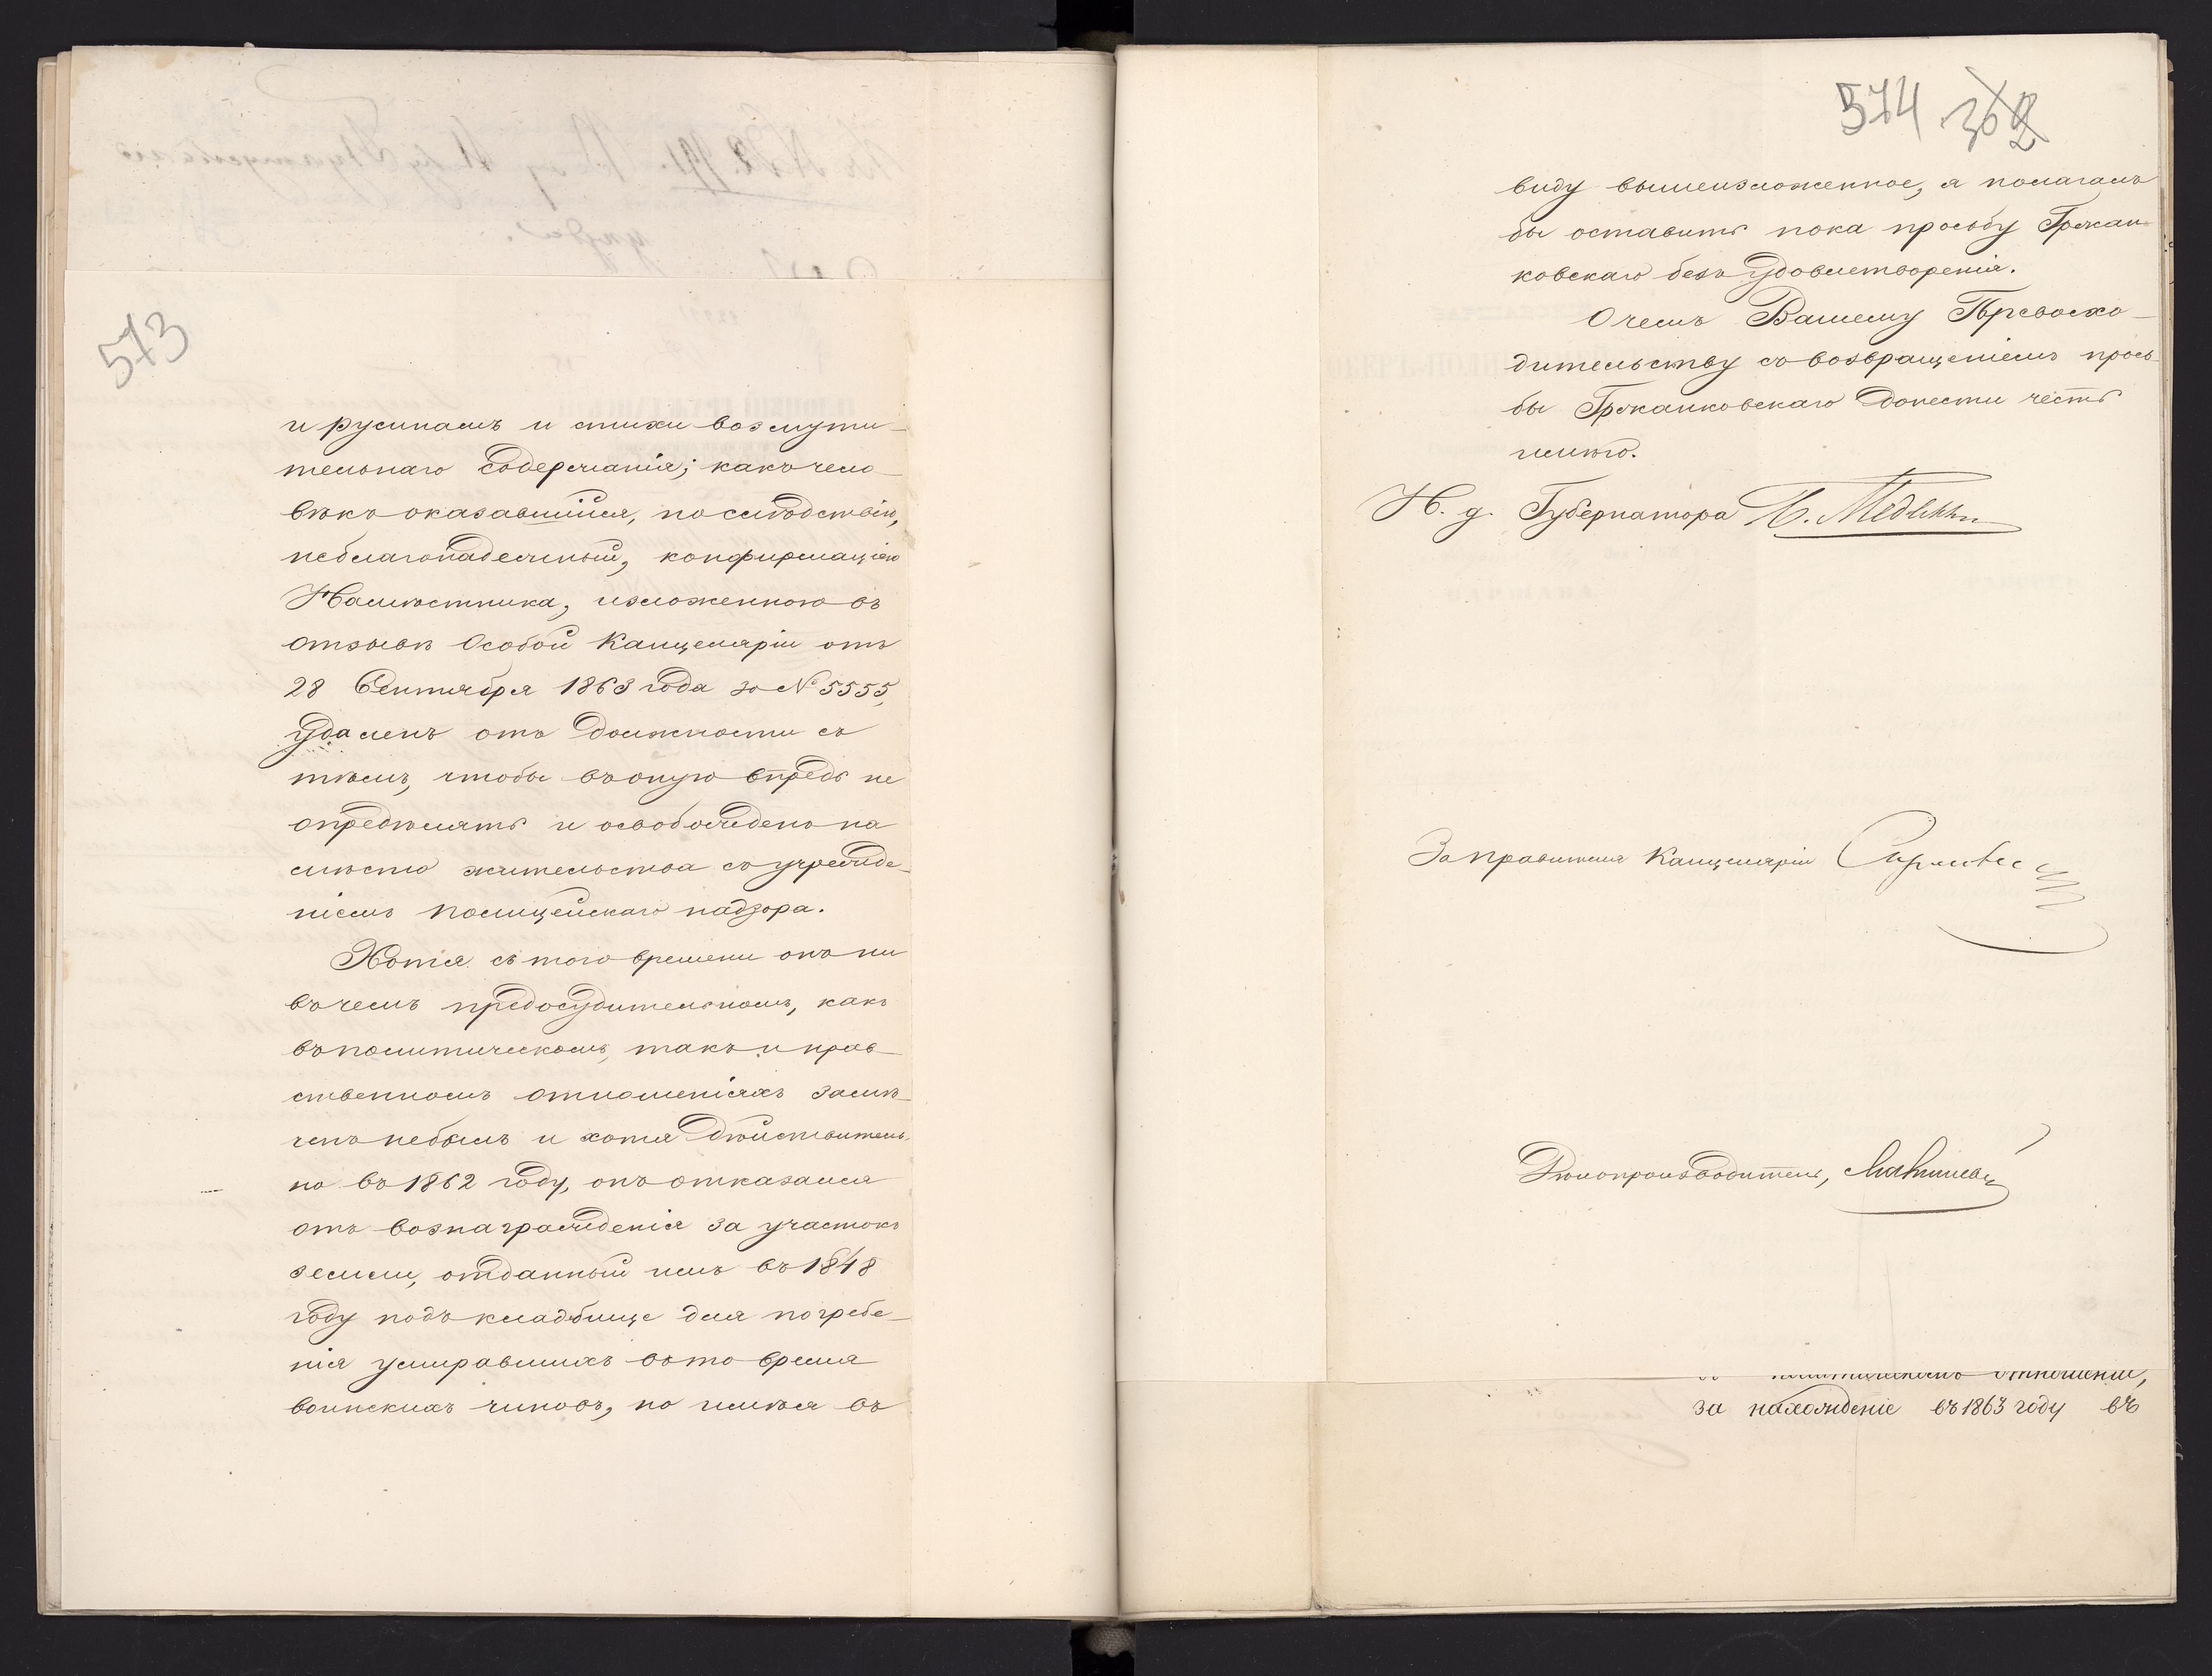 573
и русинамъ и стихи возмути-
тельнаго содержанія; какъ чело-
вѣкъ оказавшійся, по слѣдствію,
неблагонадежный, конфирмаціею
Намѣстника, изложенною въ
отзывѣ Особой Канцеляріи отъ
28 Сентября 1863 года за № 5555,
удаленъ отъ должности съ
тѣмъ, чтобы въ оную впредь не
опредѣлять и освобожденъ на
мѣсто жительства съ учрежде-
ніемъ полицейскаго надзора.
Хотя съ того времени онъ ни
въ чемъ предосудительномъ, какъ
въ политическомъ, такъ и нрав-
ственномъ отношеніяхъ замѣ-
ченъ небылъ и хотя дѣйствитель-
но въ 1862 году, онъ отказался
отъ вознагражденія за участокъ
земли, отданный имъ въ 1848
году подъ кладбище для погребе-
нія умиравшихъ въ то время
воинскихъ чиновъ, но имѣя въ
574 362
виду вышеизложенное, я полагалъ
бы оставить пока просьбу Гржан-
ковскаго безъ удовлетворенія.
О чемъ Вашему Превосхо-
дительству съ возвращеніемъ прось-
бы Гржанковскаго донести честь
имѣю.
И. д. Губернатора
За правителя Канцеляріи
Дѣлопроизводитель,
политическомъ отношеніи,
за нахожденіе въ 1863 году въ